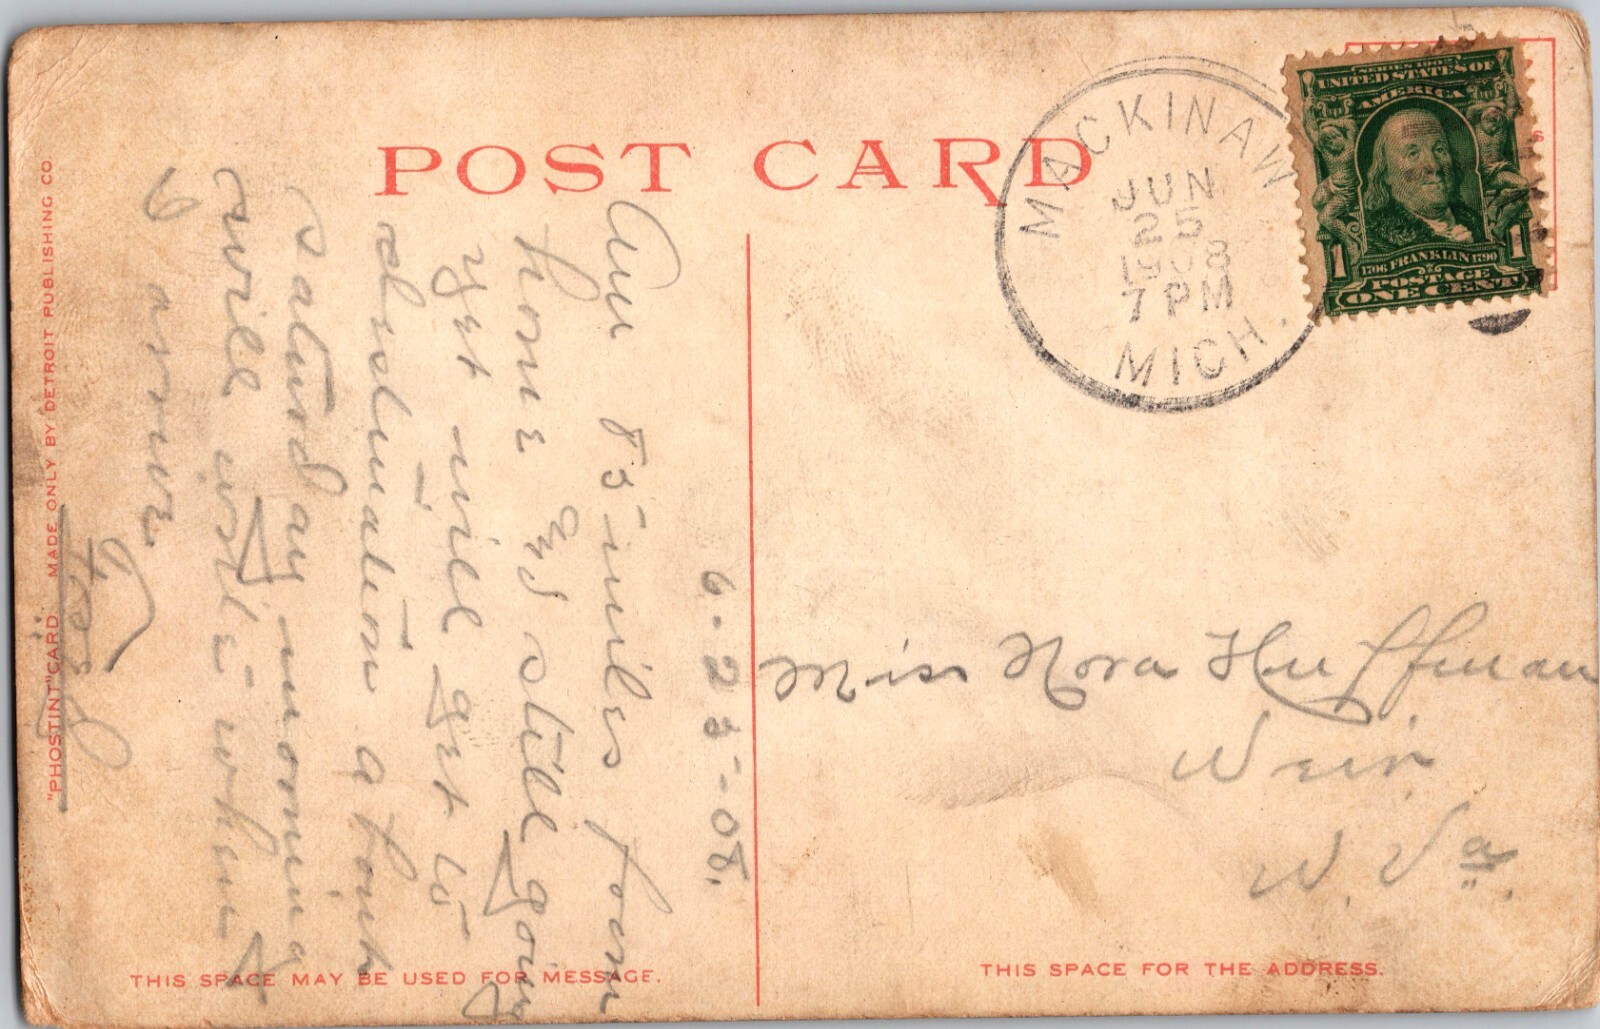 POST CARD
MACKINAW
JUN
25
1908
7 PM
MICH.
SERIES 1902
UNITED STATES OF
AMERICA
1706 FRANKLIN 1790
1 1
POSTAGE
ONE CENT
6-25-08.
Am 85 miles from
home and still going
yet will get to
destination about
Saturday morning
will write when
I arrive.
Miss Nora Huffman
Weir
W. Va.
THIS SPACE MAY BE USED FOR MESSAGE.
THIS SPACE FOR THE ADDRESS.
"PHOSTINT" CARD MADE ONLY BY DETROIT PUBLISHING CO